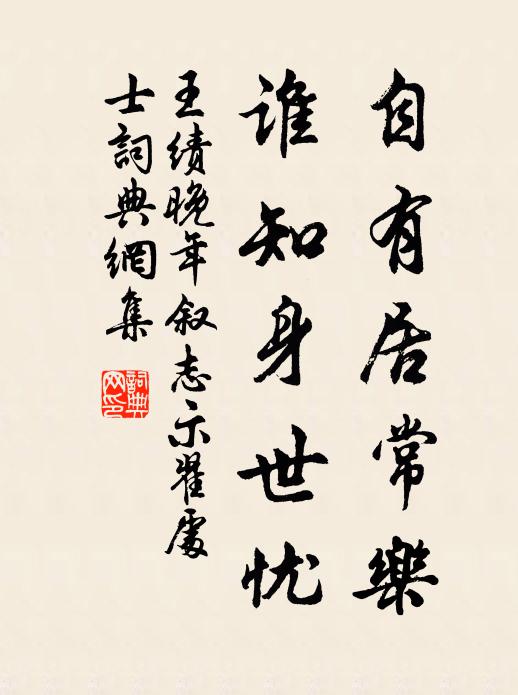 自有居常樂
誰知身世忧
王績晚年叙志示翟處
士詞典網集
詞典
网印